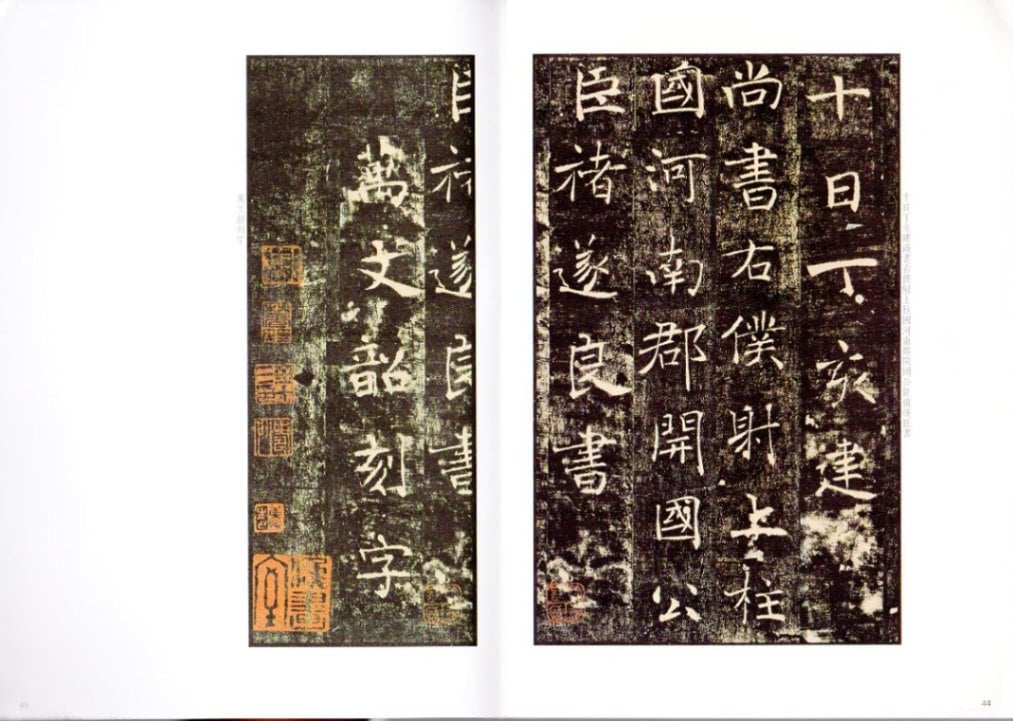 十日丁亥建
尚書右僕射上柱
國河南郡開國公
臣褚遂良書
44
臣褚遂良書
萬文韶刻字
萬文韶刻字